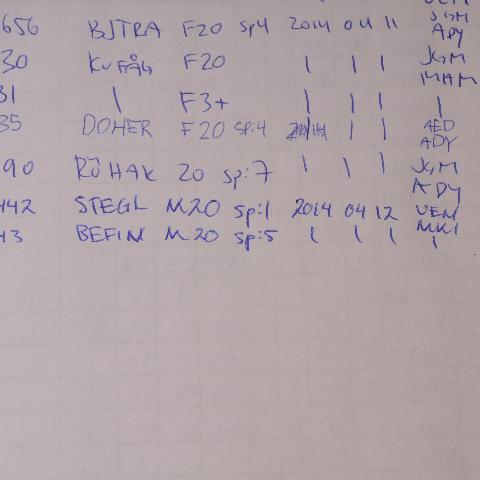 JGM
656 BJTRA F20 Sp4 2014 04 11 ADY
30 KUFÅG F20 | | | JGM
MAM
31 | F3+ | | | |
35 DOHER F20 SP:4 | | AED
ADY
90 RÖHAK 20 Sp:7 | | | JGM
ADY
442 STEGL M20 Sp:1 2014 04 12 UEM
43 BEFIN M20 Sp:5 | | | MKI
|